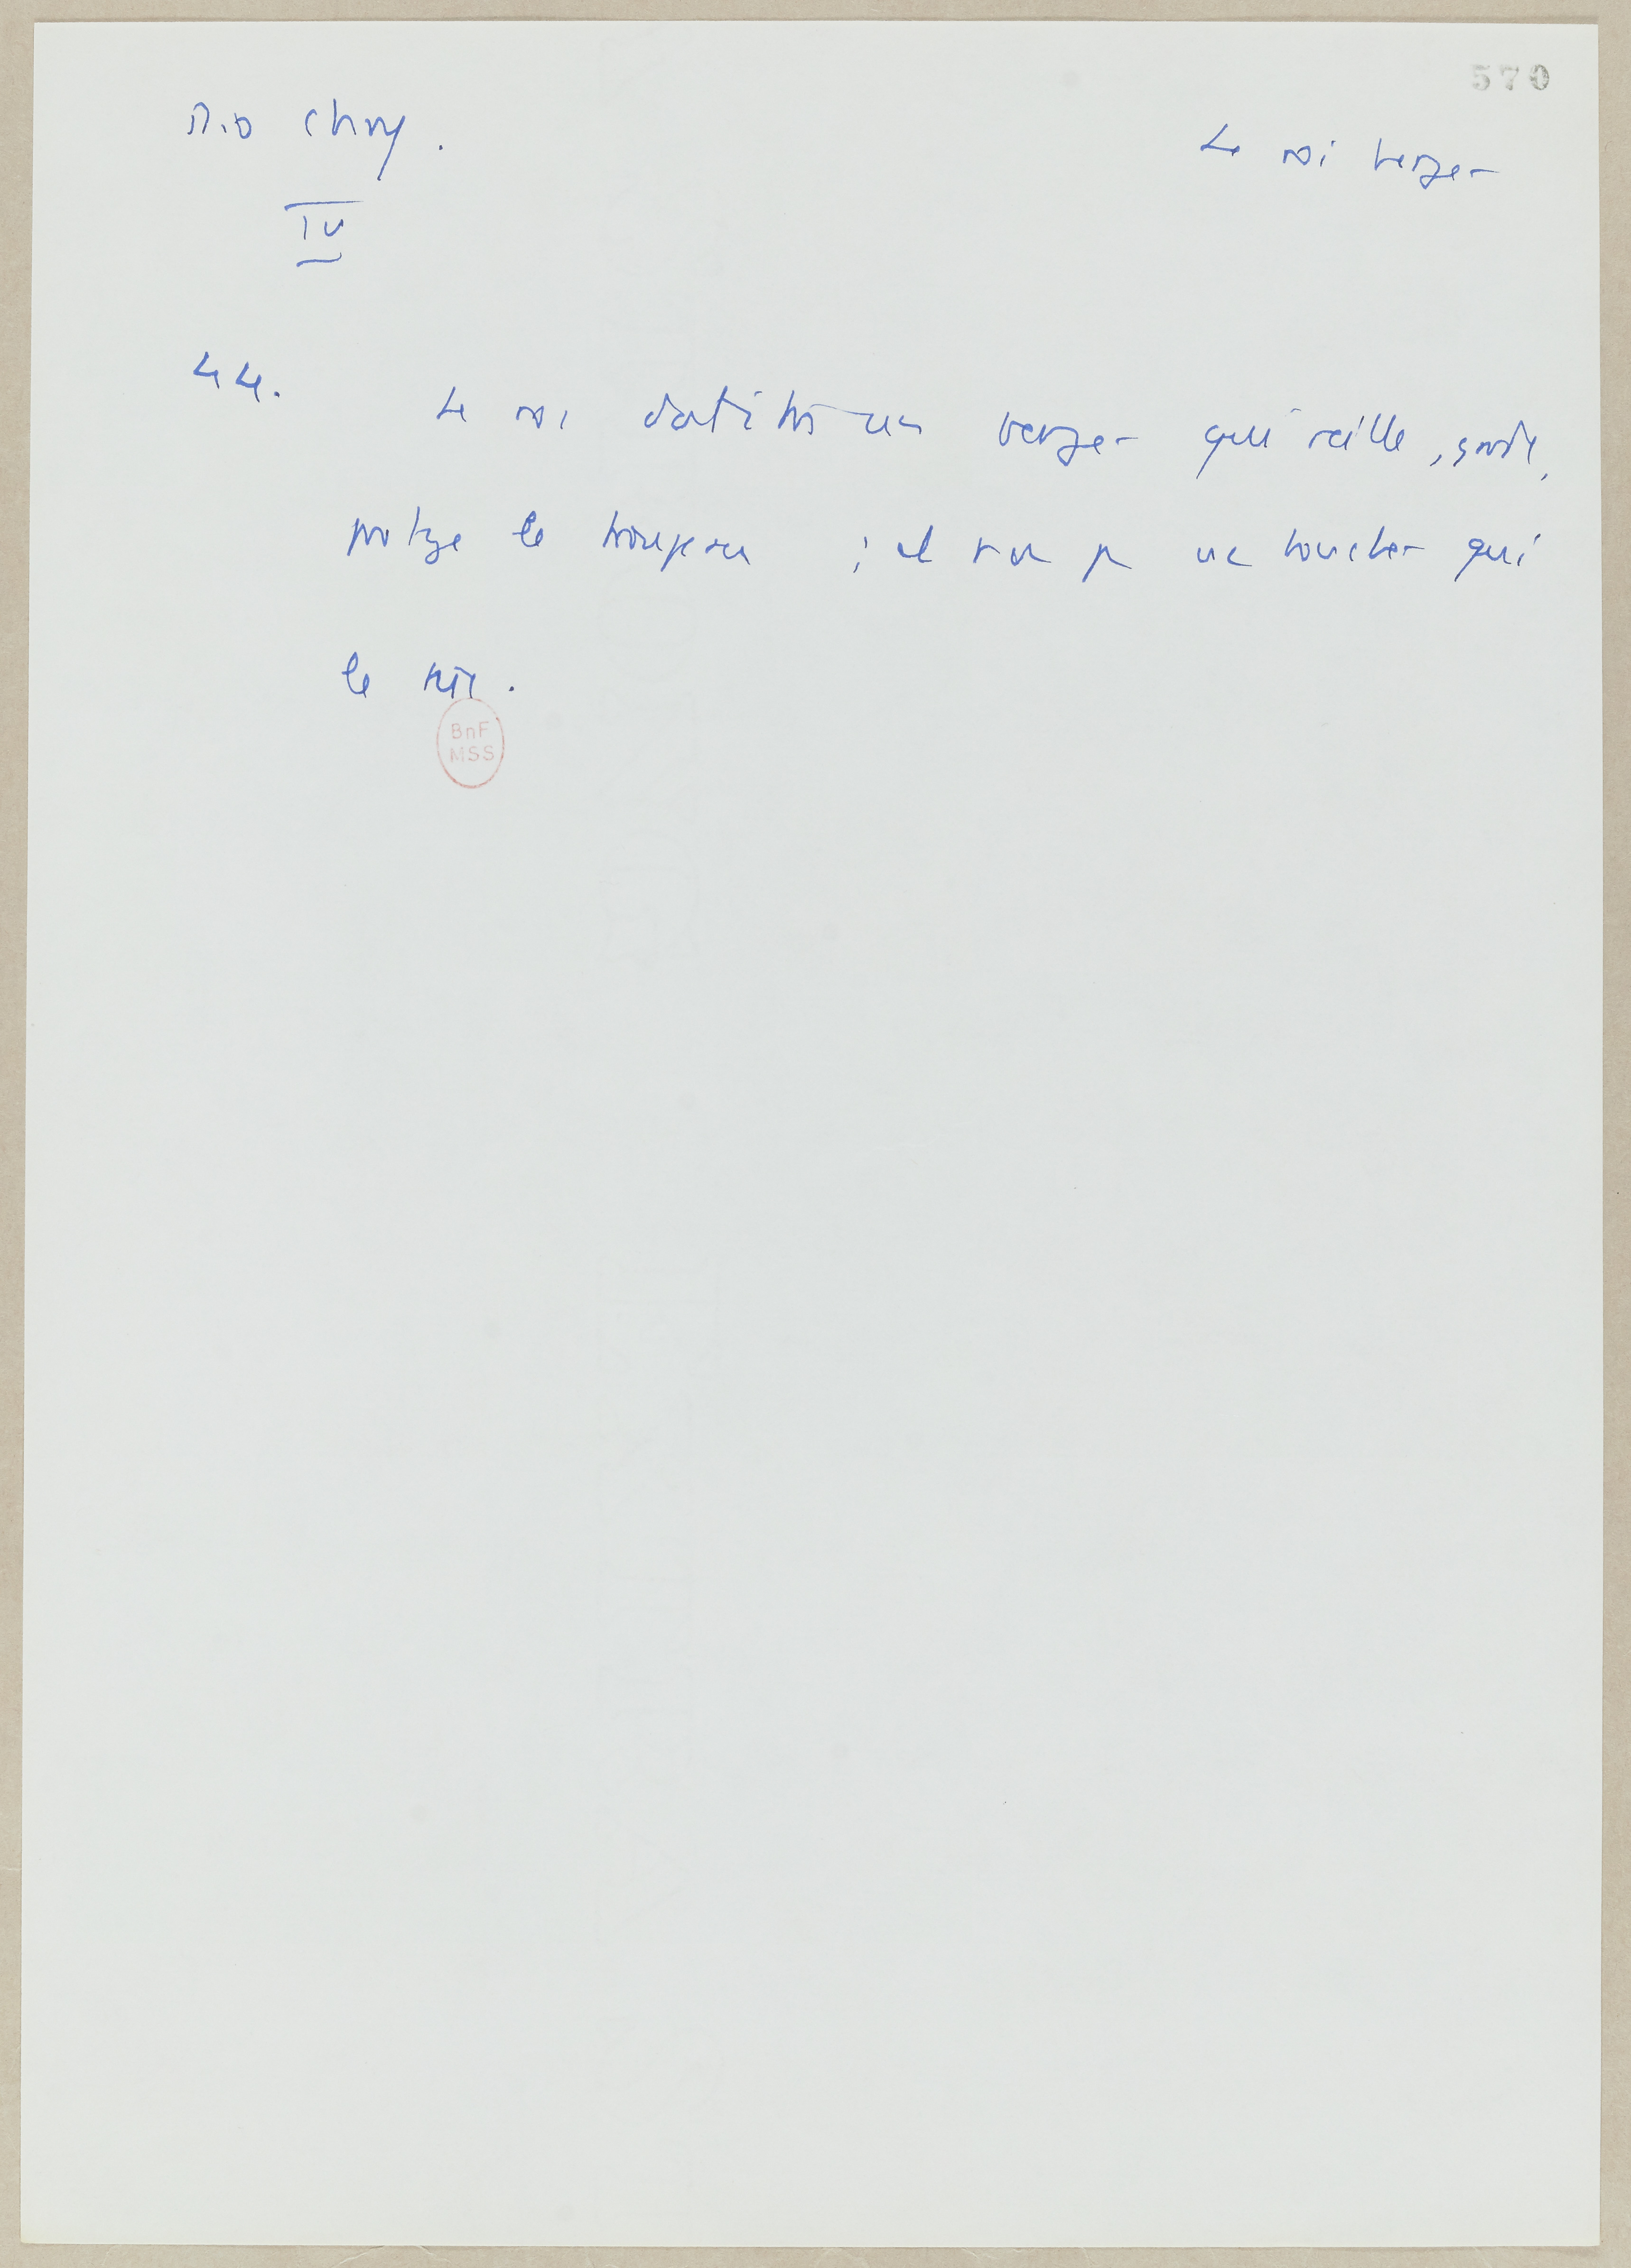 570
Dio Chry.
Le roi berger
IV
44.
Le roi doit être un berger qui veille, garde,
protège le troupeau ; et non pas un boucher qui
le tue.
BnF
MSS